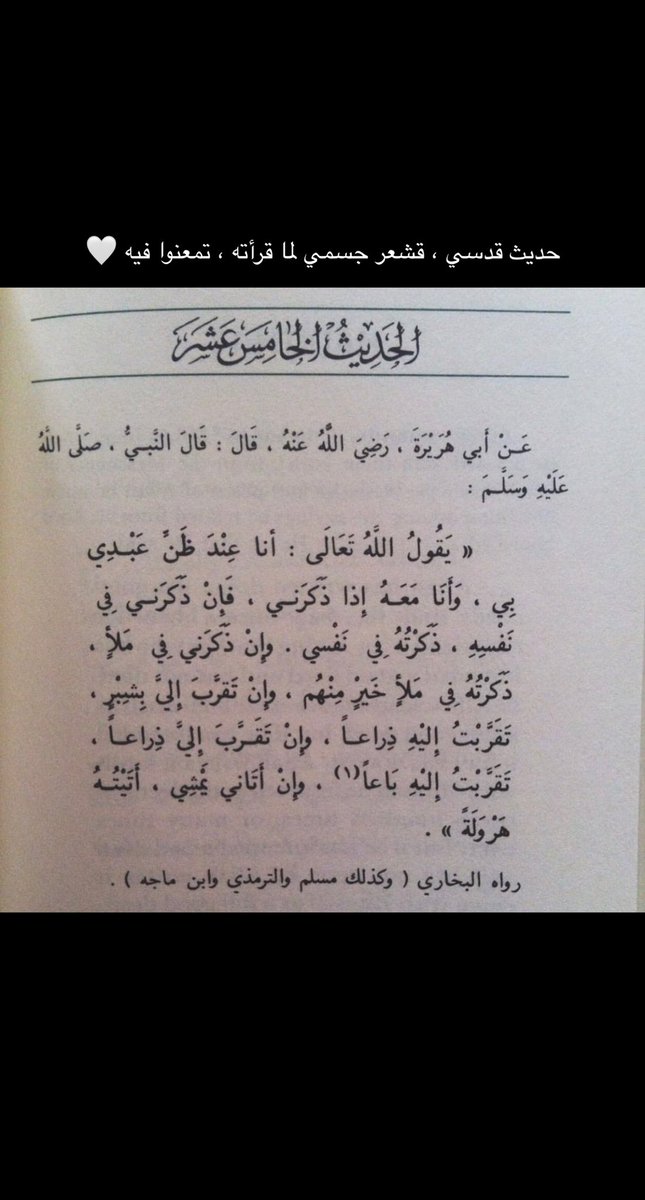 حديث قدسي ، قشعر جسمي لما قرأته ، تمعنوا فيه 🤍
الحَدِيثُ الخَامِسَ عَشَرَ
عَـنْ أَبي هُرَيْرَةَ ، رَضِيَ اللَّهُ عَنْهُ ، قَالَ : قَالَ النَّبـيُّ ، صَلَّى اللَّهُ
عَلَيْهِ وَسَلَّـمَ :
« يَقُولُ اللَّهُ تَعَالَى : أنا عِنْدَ ظَنِّ عَبْـدِي
بِي ، وَأَنَا مَعَـهُ إِذا ذَكَرَنـي ، فَإِنْ ذَكَرَنـي فِي
نَفْسِهِ ، ذَكَرْتُهُ فِي نَفْسي . وإِنْ ذَكَرَني فِي مَلأٍ ،
ذَكَرْتُهُ فِي مَلأٍ خَيْرٍ مِنْهُم ، وإِنْ تَقَرَّبَ إِليَّ بِشِبْرٍ ،
تَقَرَّبْتُ إِليْهِ ذِراعـاً ، وإِنْ تَقَـرَّبَ إِليَّ ذِراعـاً ،
تَقَرَّبْتُ إِليْهِ بَاعاً(١) ، وإِنْ أَتَاني يَمْشِي ، أَتَيْتُـهُ
هَرْوَلَةً » .
رواه البخاري ( وكذلك مسلم والترمذي وابن ماجه ) .